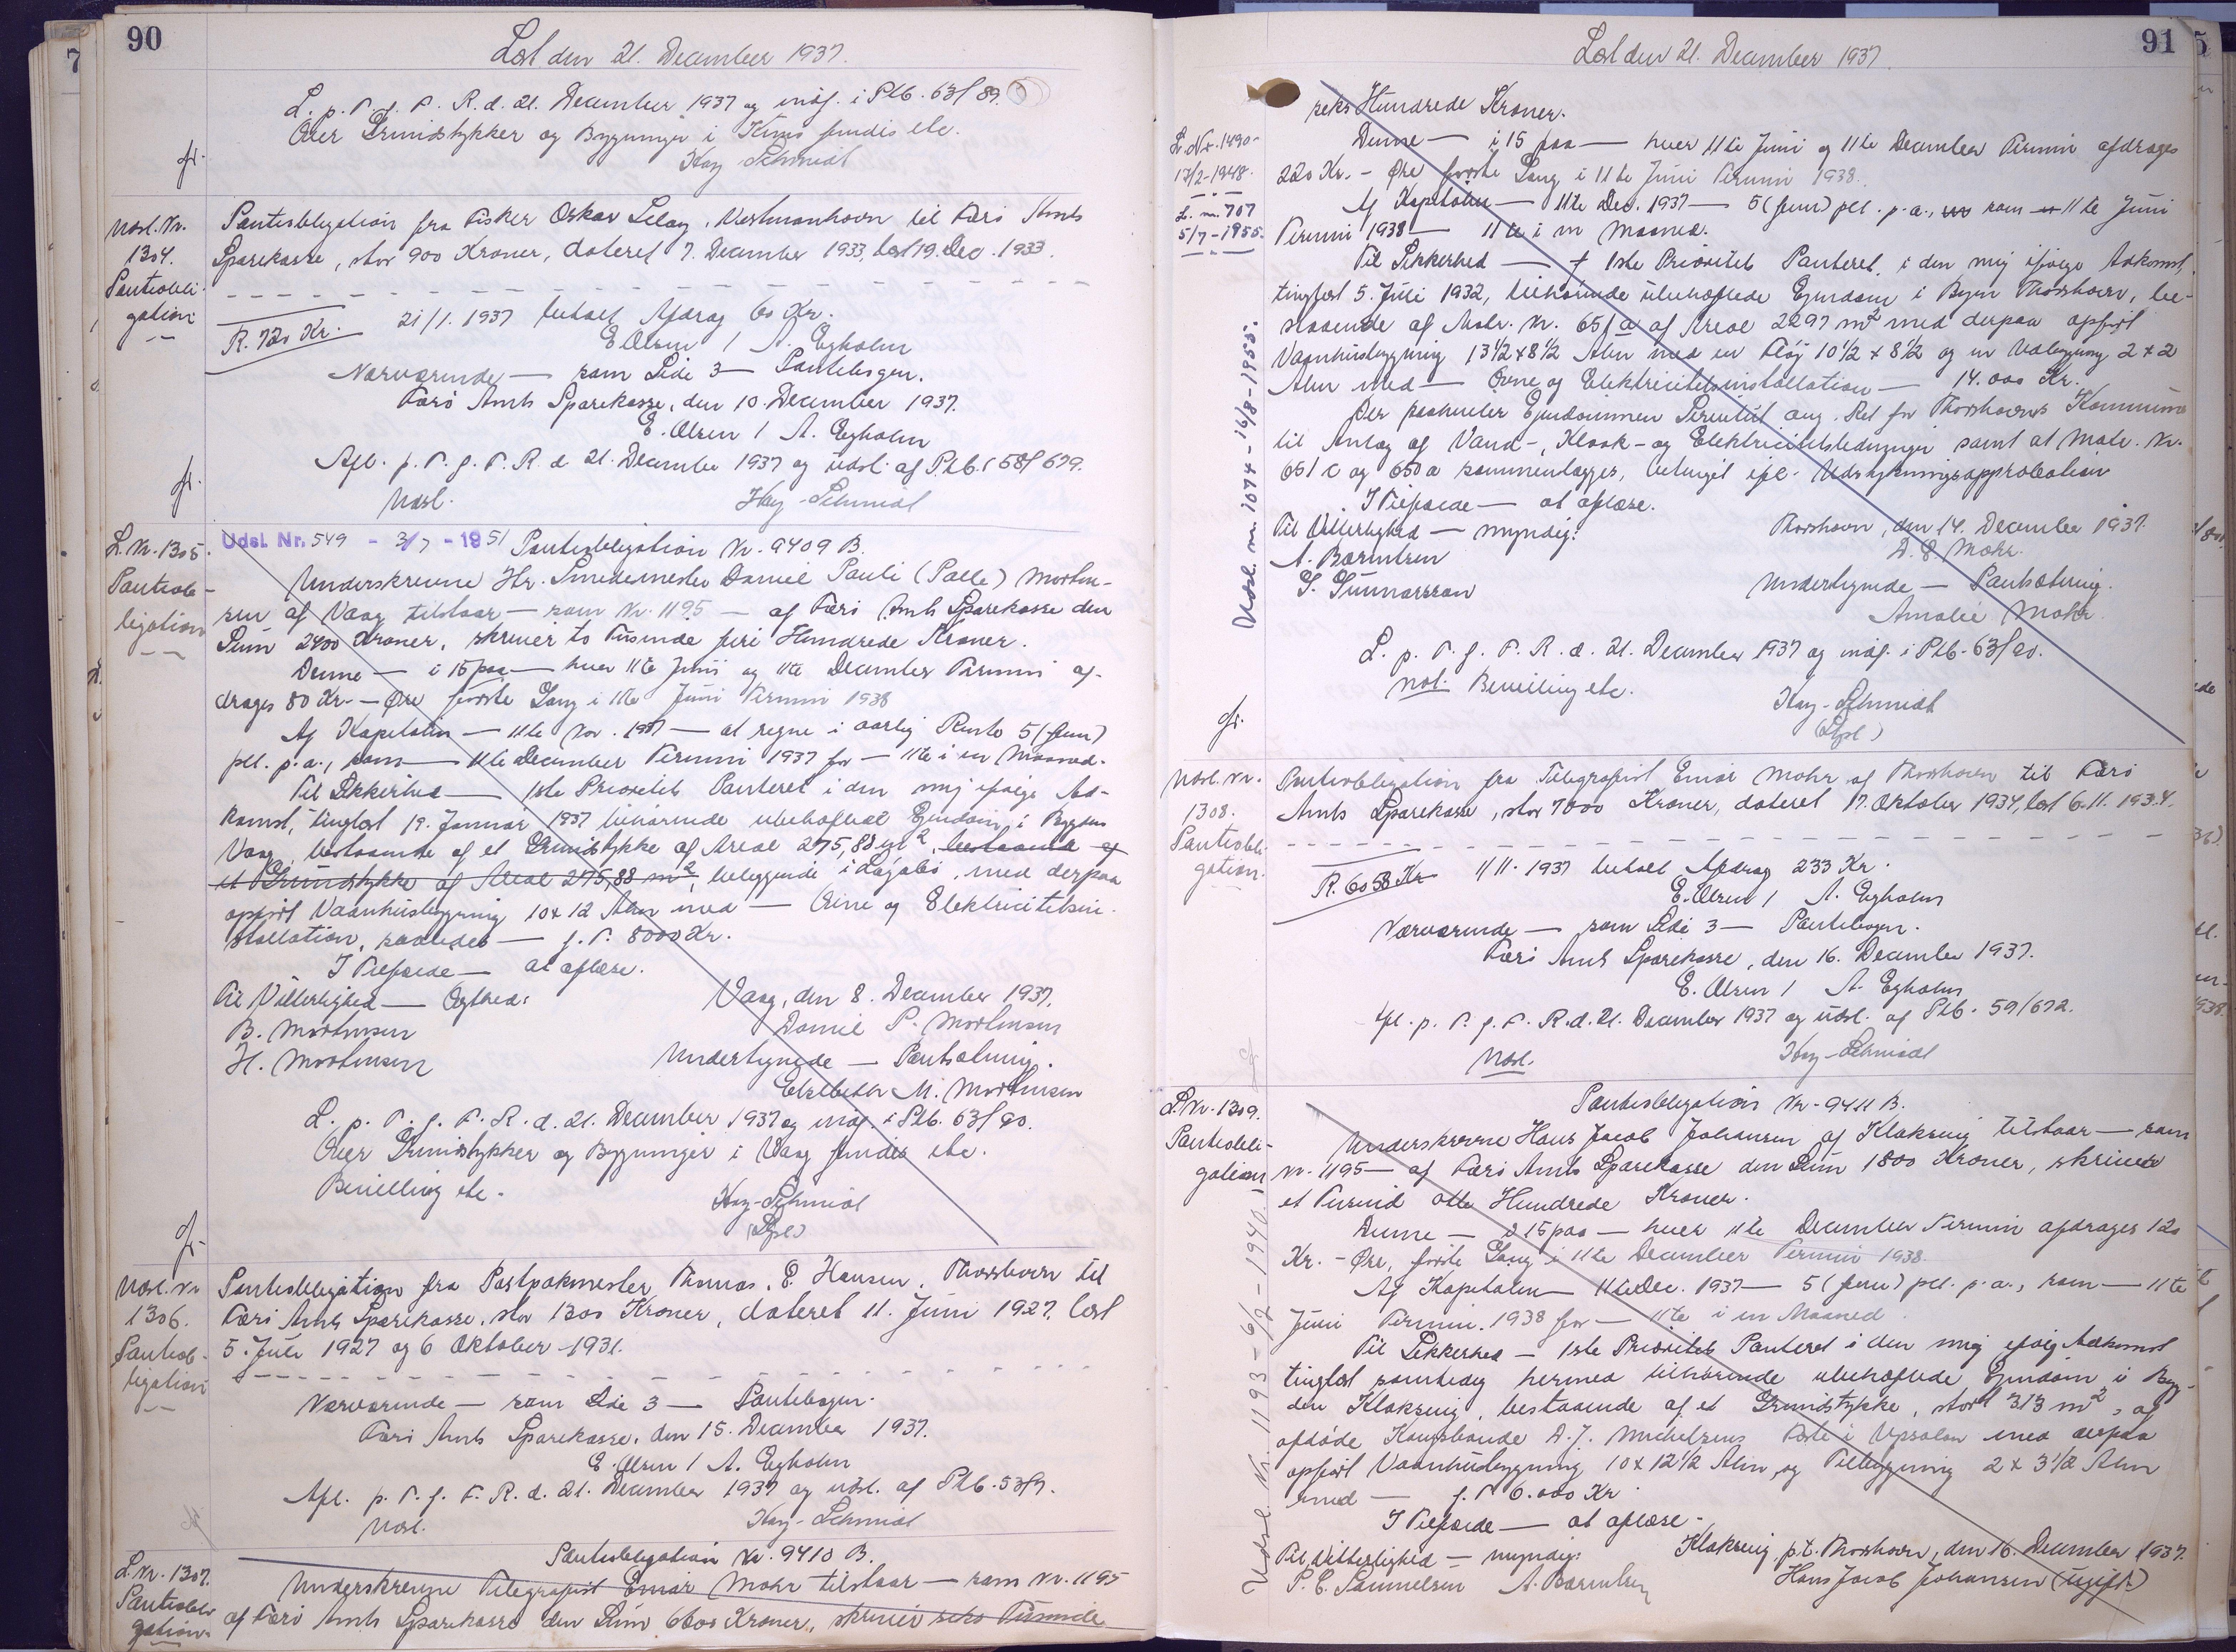 90
Læst den 21. December 1937.
L. p. T. f. F. R. d. 21. December 1937 og indf. i Ptb. 63f 89.
Over Grundstykker og Bygninger i findes etc.
Høy-Schmidt
fr.
Udsl. Nr.
1304.
Pantobli-
gation
Pantobligation fra Fisker Oskar Vestmanhavn til Færø Amts
Sparekasse, stor 900 Kroner, dateret 7. December 1933, læst 19. Dec. 1933.
R. 720 Kr. 21/1. 1937 betalt Afdrag 60 Kr.
E. Olsen / A. Egholm
Nærværende — som Side 3 — Pantebogen.
Færø Amts Sparekasse, den 10. December 1937.
E. Olsen / A. Egholm
Afl. p. T. f. F. R. d. 21. December 1937 og udsl. af Ptb. 58f 679.
fr.
Udsl. Høy-Schmidt
L. Nr. 1305.
Pantob-
ligation
Udsl. Nr. 549 - 3/7 - 1951 Pantobligation Nr. 9409 B.
Underskrevne Hr. Smedemester Daniel Pauli (Palle) Morten-
sen af Vaag tilstaar — som Nr. 1195 — af Færø Amts Sparekasse den
Sum 2400 Kroner, skriver to Tusinde fire Hundrede Kroner.
Denne — i 15 paa — hver 11te Juni og 11te December Termin af-
drages 80 Kr. — Øre første Gang i 11te Juni Termin 1938
Af Kapitalen — 11te Nov. 1937 — at regne i aarlig Rente 5 (fem)
pCt. p. a., som — 11te December Termin 1937 for — 11te i en Maaned.
Til Sikkerhed — 1ste Prioritets Panteret i den mig ifølge Ad-
komst, tinglæst 19. Januar 1937 tilhørende ubehæftede Ejendom i Bygden
Vaag, bestaaende af et Grundstykke af Areal 275,88 m², bestaaende af
et Grundstykke af Areal 275,88 m², beliggende i Lágabø, med derpaa
opført Vaanhusbygning 10 x 12 Alen med — Ovne og Elektricitetsin-
stallation, saaledes — f. T. 8000 Kr.
I Tilfælde — at aflæse.
Til Vitterlighed — Ægthed: Vaag, den 8. December 1937.
B. Mortensen Daniel P. Mortensen
H. Mortensen Undertegnede — Pantsætning.
Elsebeth M. Mortensen
L. p. T. f. F. R. d. 21. December 1937 og indf. i Ptb. 63f 90.
Over Grundstykker og Bygninger i Vaag findes etc.
Bevilling etc.
Høy-Schmidt
fr.
Udsl. Nr.
1306.
Pantob-
ligation
Pantobligation fra Postpakmester Thomas E. Hansen, Thorshavn til
Færø Amts Sparekasse, stor 1300 Kroner, dateret 11. Juni 1927, læst
5. Juli 1927 og 6 Oktober 1931.
Nærværende — som Side 3 — Pantebogen.
Færø Amts Sparekasse, den 15. December 1937.
E. Olsen / A. Egholm
Afl. p. T. f. F. R. d. 21. December 1937 og udsl. af Ptb. 53f9.
Udsl. Høy-Schmidt
L. Nr. 1307.
Pantobli-
gation
Pantobligation Nr. 9410 B.
Underskrevne Telegrafist Einar Mohr tilstaar — som Nr. 1195
af Færø Amts Sparekasse den Sum 6600 Kroner, skriver seks Tusinde
91
Læst den 21. December 1937.
seks Hundrede Kroner.
L. Nr. 1490-
17/2-1948.
L. nr. 707
5/7-1955.
Denne — i 15 paa — hver 11te Juni og 11te December Termin afdrages
220 Kr. - Øre første Gang i 11te Juni Termin 1938.
Af Kapitalen — 11te Dec. 1937 — 5 (fem) pCt. p. a., som 11te Juni
Termin 1938 — 11te i en Maaned.
Til Sikkerhed — f 1ste Prioritets Panteret i den mig ifølge Adkomst,
tinglæst 5. Juli 1932, tilhørende ubehæftede Ejendom i Byen Thorshavn, be-
staaende af Matr. Nr. 651 a af Areal 2297 m² med derpaa opført
Vaanhusbygning 13½ x 8½ Alen med en Fløj 10½ x 8½ og en Udbygning 2 x 2
Alen med — Ovne og Elektricitetsinstallation — 14.000 Kr.
Der paahviler Ejendommen Servitut ang. Ret for Thorshavns Kommune
til Anlæg af Vand-, Kloak- og Elektricitetsledninger samt at Matr. Nr.
651 c og 650 a sammenlægges, betinget ifl. Udstykningsapprobation
I Tilfælde — at aflæse.
Til Vitterlighed — myndig: Thorshavn, den 14. December 1937.
A. Bærentsen Mohr.
G. Gunnarsson Undertegnede — Pantsætning.
Amalie Mohr.
Udsl. nr. 1074 - 16/8 - 1955.
L. p. T. f. F. R. d. 21. December 1937 og indf. i Ptb. 63f 90.
Not. Bevilling etc. Høy-Schmidt
fr.
Udsl. Nr.
1308.
Pantobli-
gation.
Pantobligation fra Telegrafist Einar Mohr af Thorshavn til Færø
Amts Sparekasse, stor 7000 Kroner, dateret 17. Oktober 1934, læst 6.11. 1934.
R. 6058 Kr 1/11. 1937 betalt Afdrag 233 Kr.
E. Olsen / A. Egholm
Nærværende — som Side 3 — Pantebogen.
Færø Amts Sparekasse, den 16. December 1937.
E. Olsen / A. Egholm
Afl. p. T. f. F. R. d. 21. December 1937 og udsl. af Ptb. 59/672.
Udsl. Høy-Schmidt
L. Nr. 1309.
Pantobli-
gation
Pantobligation Nr. 9411 B.
Underskrevne Hans Jacob Johansen af Klaksvig tilstaar — som
Nr. 1195 — af Færø Amts Sparekasse den Sum 1800 Kroner, skriver
et Tusind otte Hundrede Kroner.
Denne — i 15 paa — hver 11te December Termin afdrages 120
Kr. - Øre, første Gang i 11te December Termin 1938
Af Kapitalen — 11te Dec. 1937 — 5 (fem) pCt. p. a., som — 11te
Juni Termin 1938 for — 11te i en Maaned.
Til Sikkerhed — 1ste Prioritets Panteret i den mig ifølg Adkomst
tinglæst samtidig hermed tilhørende ubehæftede Ejendom i Byg-
den Klaksvig, bestaaende af et Grundstykke, stort 313 m², af
afdøde Kongsbonde D. J. Michelsens Fæste i Upsalen med derpaa
opført Vaanhusbygning 10 x 12½ Alen og Tilbygning 2 x 3½ Alen
med — f. T 6.000 Kr
I Tilfælde — at aflæse.
Til Vitterlighed — myndig: Klaksvig, p.t. Thorshavn, den 16. December 1937.
P. C. Samuelsen A. Bærentsen Hans Jacob Johansen (ugift)
Udsl. Nr. 1193 - 6/2 - 1940.